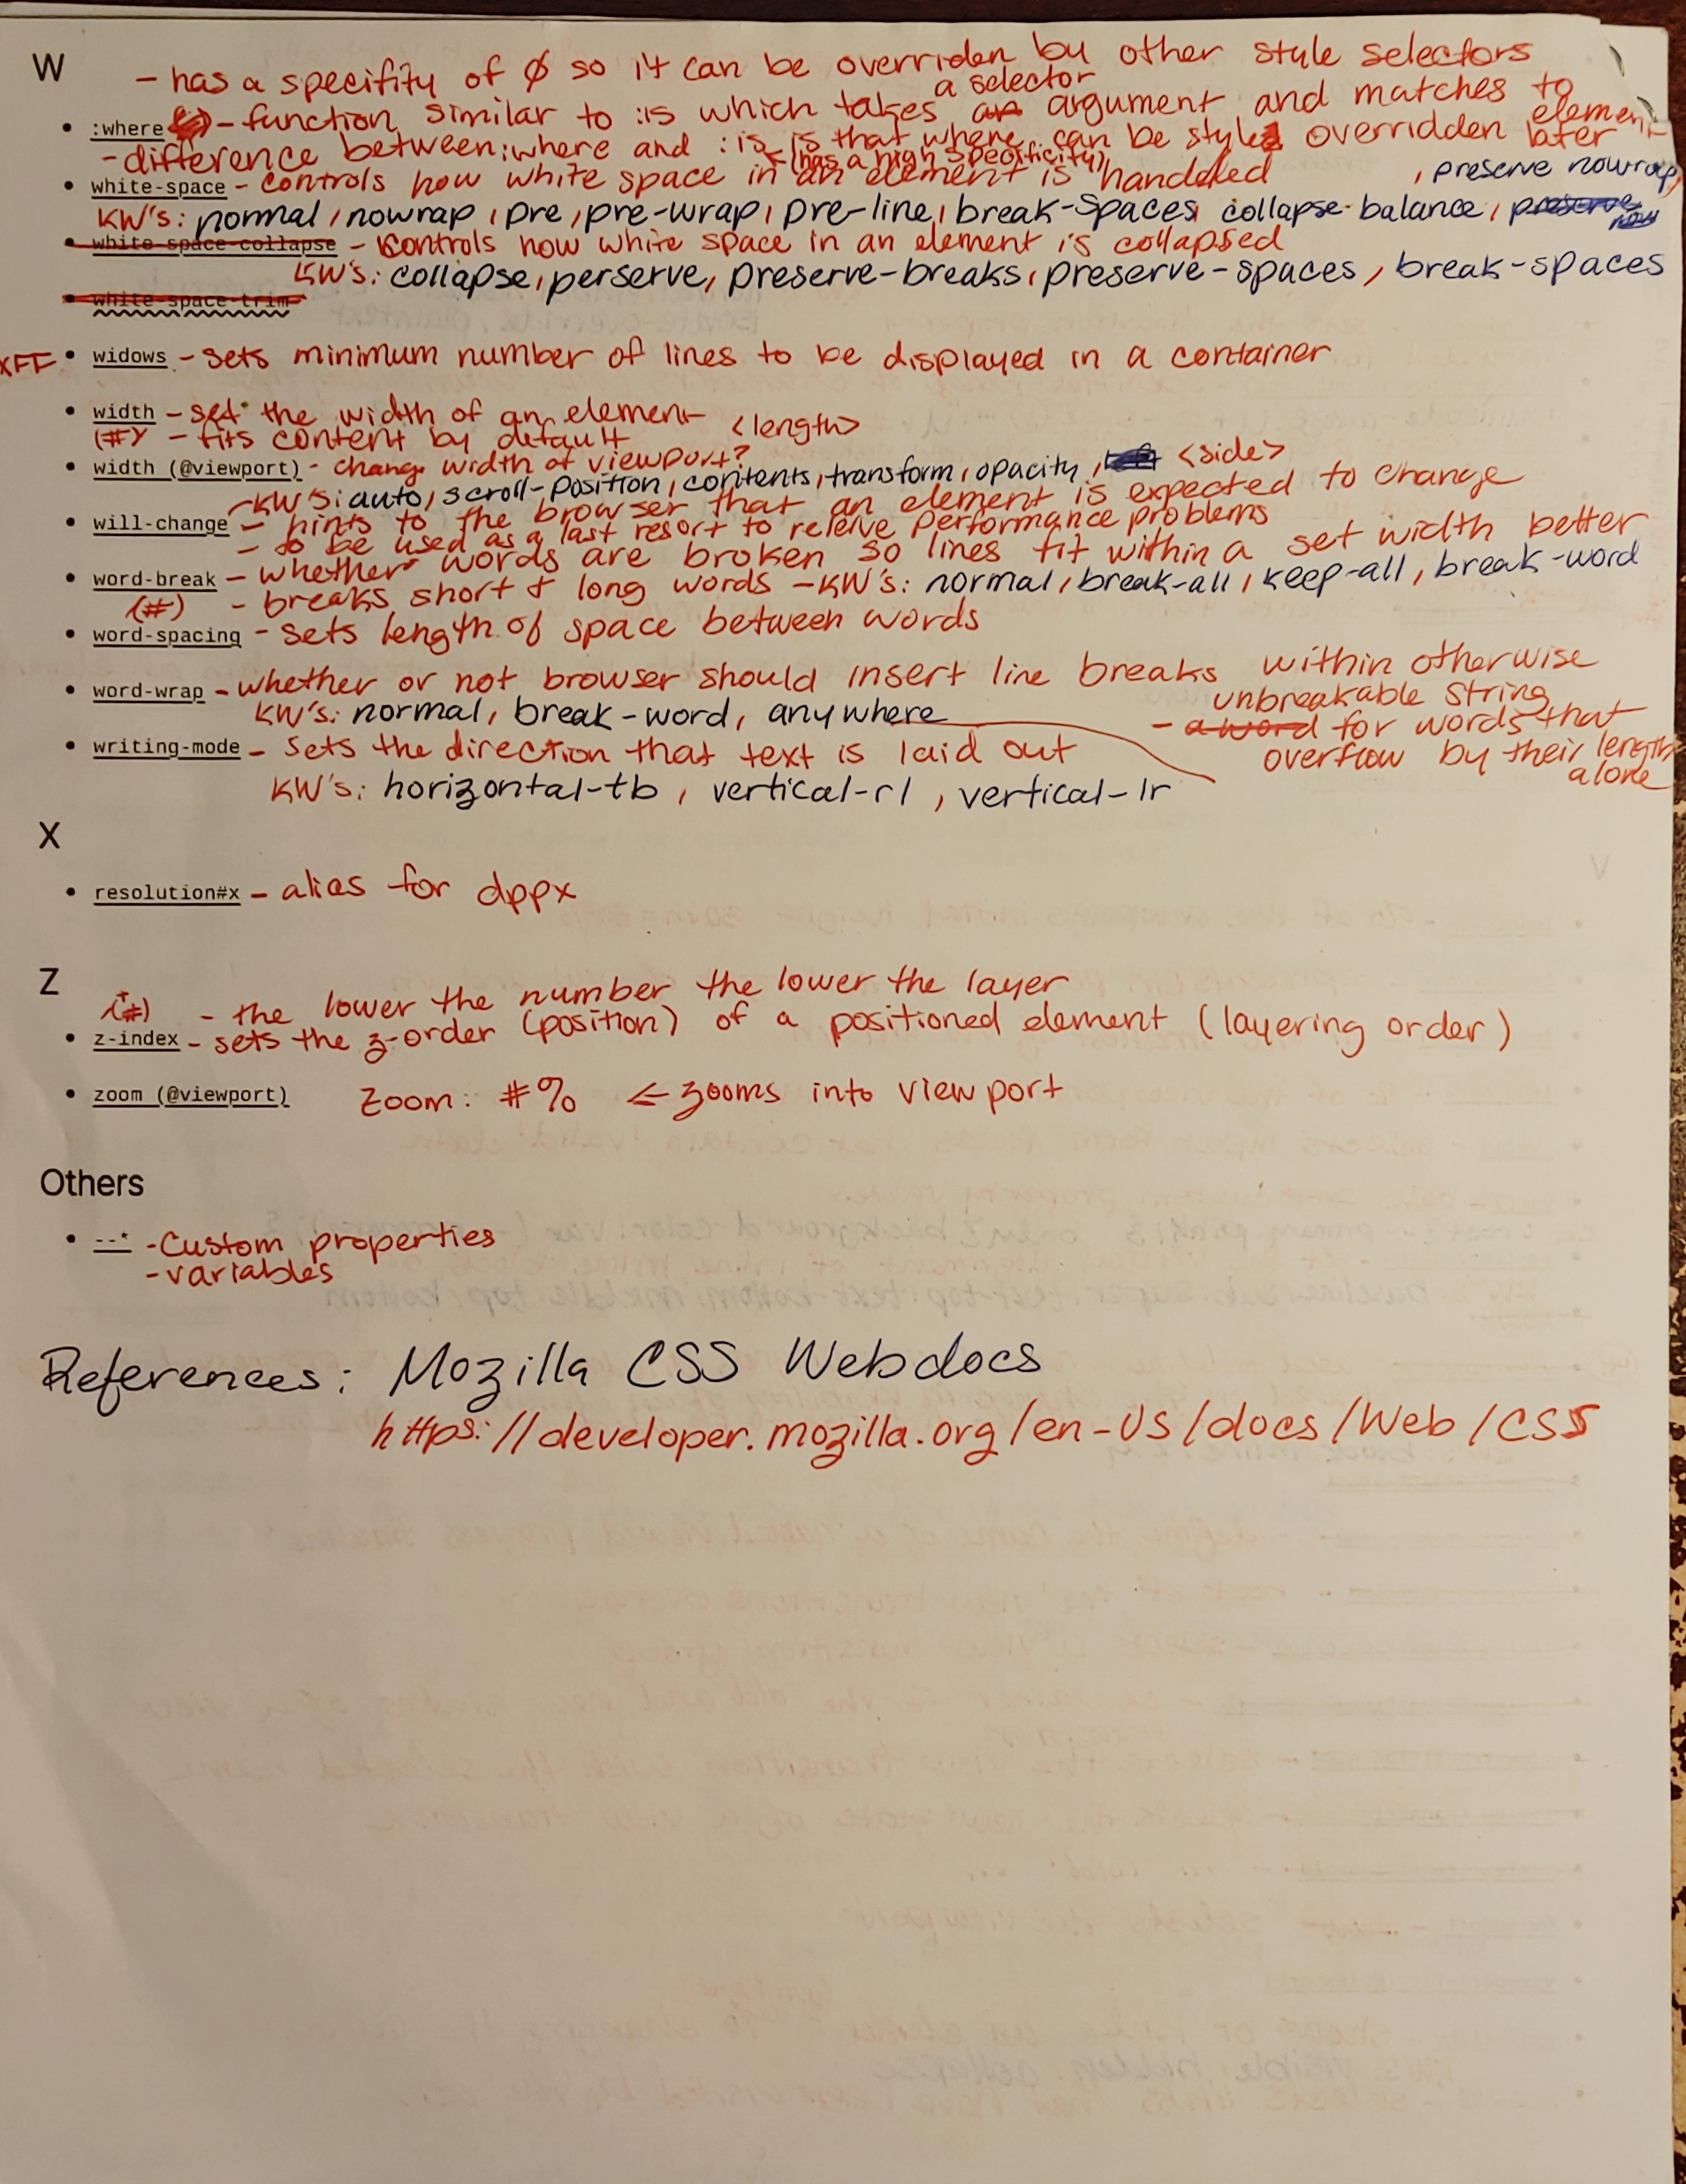 W
- has a specifity of Ø so it can be overriden by other style selectors
• :where - function similar to :is which takes a selector argument and matches to element
- difference between :where and :is is that where can be style overridden later
(has a high specificity)
• white-space - controls how white space in an element is handled
KW's: normal, nowrap, pre, pre-wrap, pre-line, break-spaces, collapse balance, preserve nowrap,
• white-space-collapse - controls how white space in an element is collapsed
KW's: collapse, perserve, preserve-breaks, preserve-spaces, break-spaces
• white-space-trim
XFF • widows - sets minimum number of lines to be displayed in a container
• width - set the width of an element <length>
(#) - fits content by default
• width (@viewport) - change width of viewport?
- KW's: auto, scroll-position, contents, transform, opacity, <side>
• will-change - hints to the browser that an element is expected to change
- to be used as a last resort to releive performance problems
• word-break - whether words are broken so lines fit within a set width better
(#) - breaks short & long words - KW's: normal, break-all, keep-all, break-word
• word-spacing - sets length of space between words
• word-wrap - whether or not browser should insert line breaks within otherwise unbreakable string
KW's: normal, break-word, anywhere
- a word for words that overflow by their length alone
• writing-mode - sets the direction that text is laid out
KW's: horizontal-tb, vertical-rl, vertical-lr
X
• resolution#x - alias for dppx
Z
(#) - the lower the number the lower the layer
• z-index - sets the z-order (position) of a positioned element (layering order)
• zoom (@viewport) Zoom: #% ← zooms into viewport
Others
• --* - Custom properties
- variables
References: Mozilla CSS Webdocs
https://developer.mozilla.org/en-US/docs/Web/CSS